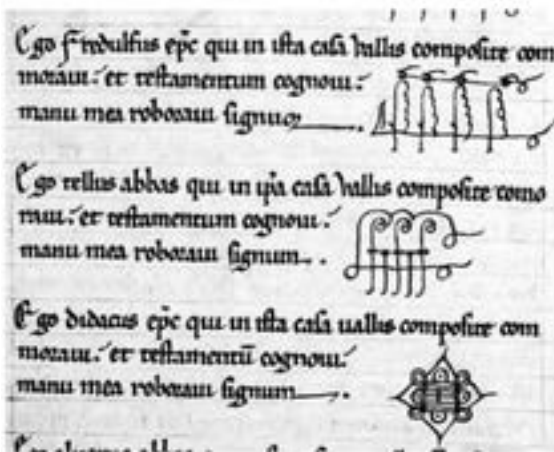 Ego fredulfus epc qui in ista casa vallis composite com
moravi: et testamentum cognovi:
manu mea roboravi signum
Ego tellus abbas qui in ipa casa vallis composite como
ravi: et testamentum cognovi:
manu mea roboravi signum..
Ego didacus epc qui in ista casa vallis composite com
moravi: et testamentū cognovi:
manu mea roboravi signum
Ego abbas